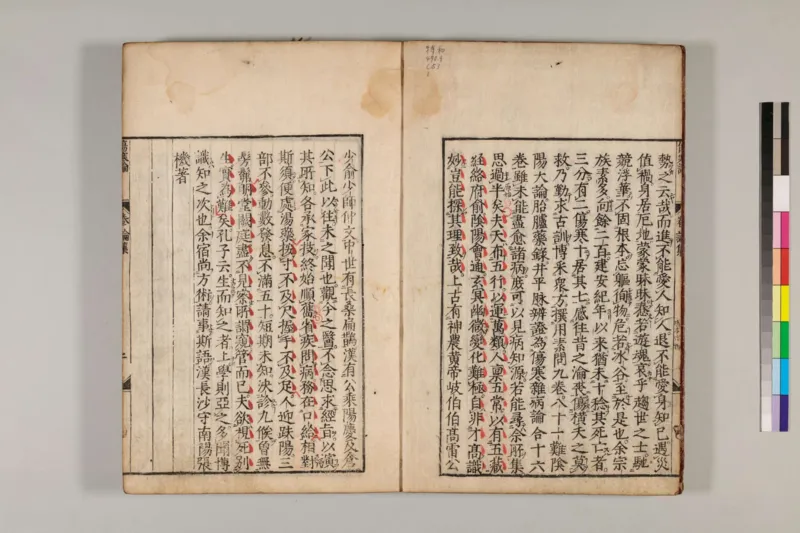 勢之云哉而進不能愛人知人退不能愛身知已遇災
值禍身居厄地蒙蒙昧昧惷若遊魂哀乎趨世之士馳
競浮華不固根本忘軀徇物危若冰谷至於是也余宗
族素多向餘二百建安紀年以來猶未十稔其死亡者
三分有二傷寒十居其七感往昔之淪喪傷橫夭之莫
救乃勤求古訓博采衆方撰用素問九卷八十一難陰
陽大論胎臚藥錄并平脉辨證為傷寒雜病論合十六
卷雖未能盡愈諸病庶可以見病知源若能尋余所集
思過半矣夫天布五行以運萬類人稟五常以有五藏
經絡府俞陰陽會通玄冥幽微變化難極自非才高識
妙豈能探其理致哉上古有神農黃帝岐伯伯高雷公
少俞少師仲文中世有長桑扁鵲漢有公乘陽慶及倉
公下此以往未之聞也觀今之醫不念思求經旨以演
其所知各承家技終始順舊省疾問病務在口給相對
斯須便處湯藥按寸不及尺握手不及足人迎趺陽三
部不參動數發息不滿五十短期未知決診九候曾無
髣髴明堂闕庭盡不見察所謂窺管而已夫欲視死別
生實為難矣孔子云生而知之者上學則亞之多聞博
識知之次也余宿尚方術請事斯語漢長沙守南陽張
機著